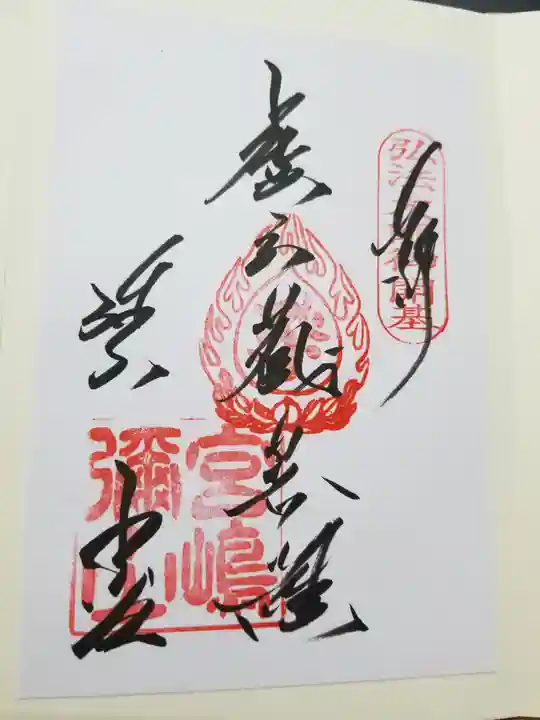 奉拝
弘法大師御開基
虚空蔵菩薩
本堂
宮嶋
彌山